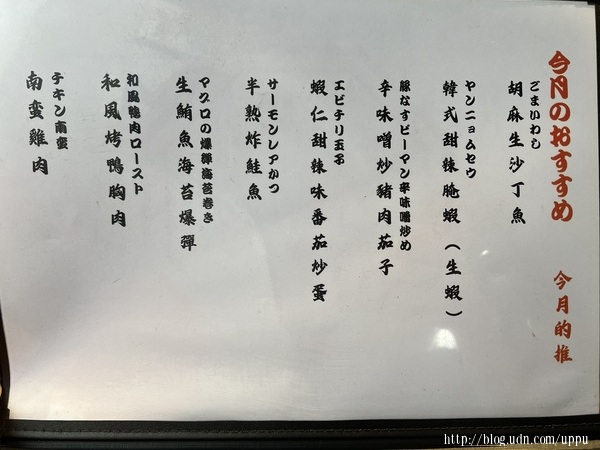 今月のおすすめ 今月的推
ごまいわし
胡麻生沙丁魚
ヤンニョムセウ
韓式甜辣腌蝦(生蝦)
豚なすピーマン辛味噌炒め
辛味噌炒豬肉茄子
エビチリ玉子
蝦仁甜辣味番茄炒蛋
サーモンレアかつ
半熟炸鮭魚
マグロの爆弾海苔巻き
生鮪魚海苔爆彈
和風鴨肉ロースト
和風烤鴨胸肉
チキン南蛮
南蛮雞肉
http://blog.udn.com/uppu